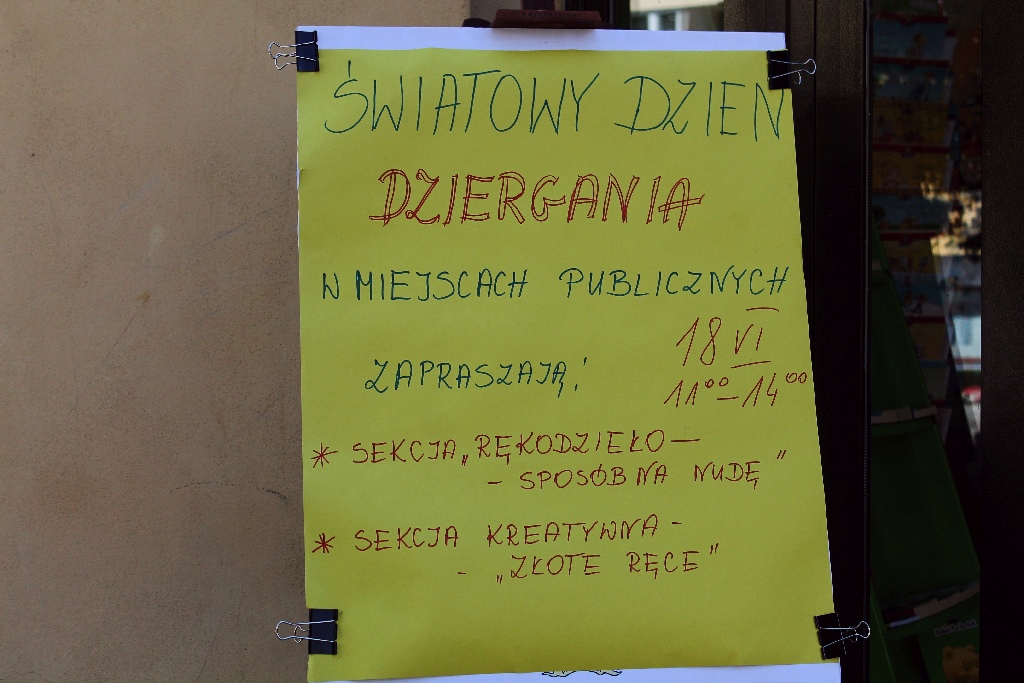 ŚWIATOWY DZIEN
DZIERGANIA
W MIEJSCACH PUBLICZNYCH
18 VI
ZAPRASZAJĄ!
11⁰⁰-14⁰⁰
* SEKCJA „RĘKODZIEŁO-
- SPOSÓB NA NUDĘ”
* SEKCJA KREATYWNA-
- „ZŁOTE RĘCE”